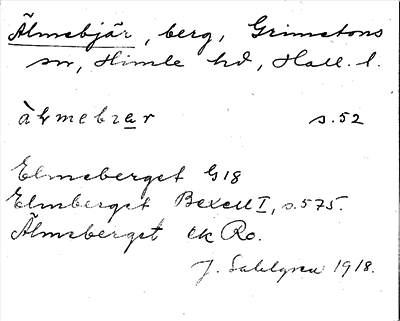 Älmebjär, berg, Grimetons
sn, Himle hd, Hall. l.
s.52
Elmeberget G18
Elmberget Bexell I, s.575.
Älmeberget ek Ro.
J. Sahlgren 1918.